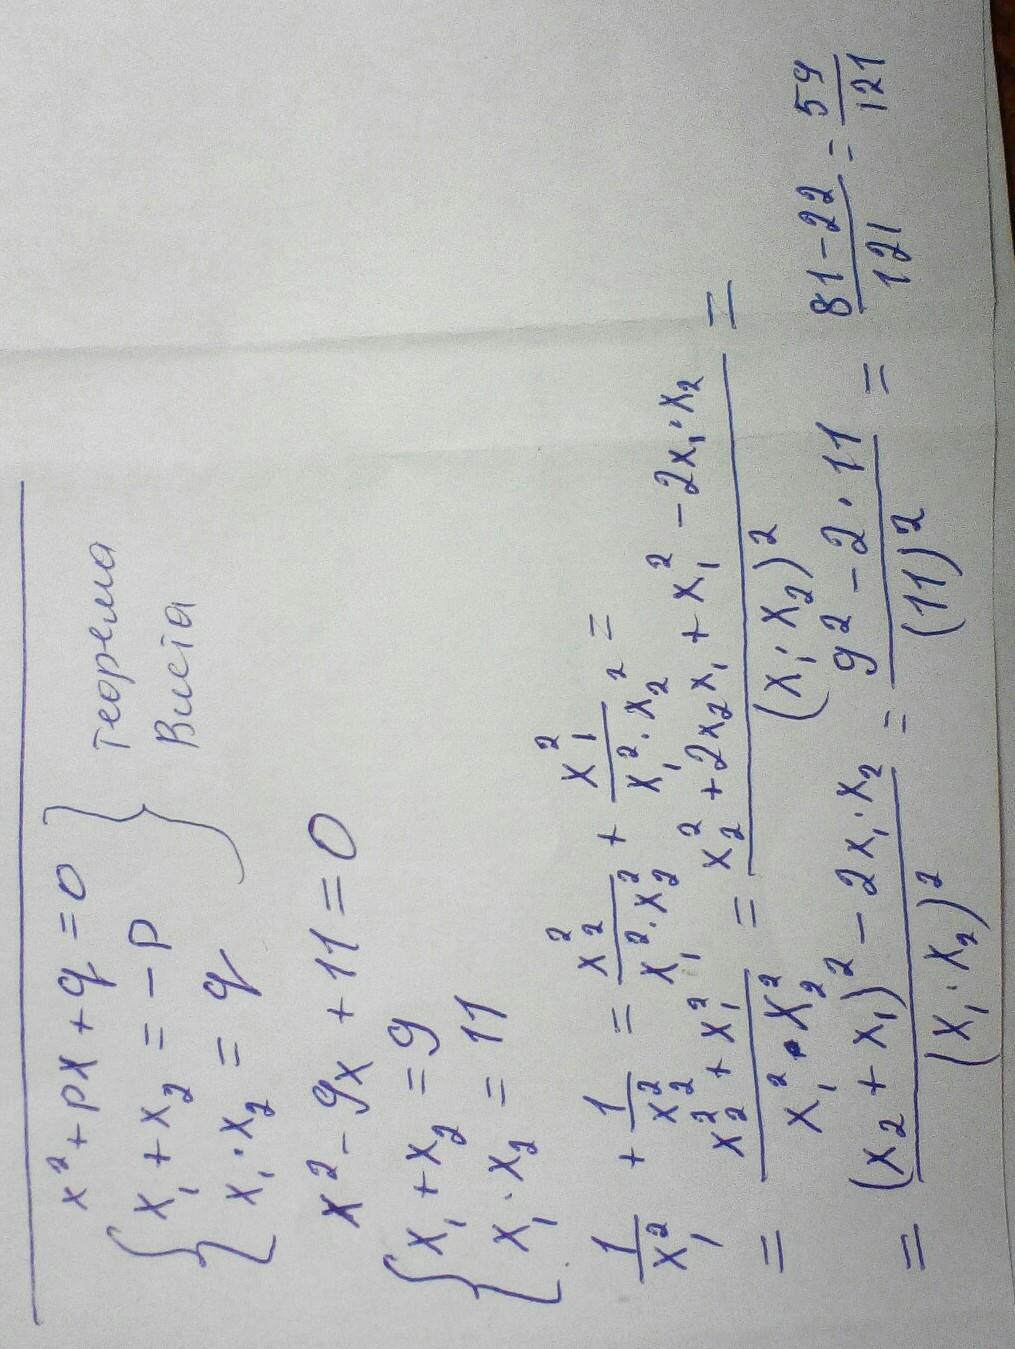 x² + px + q = 0
{ x₁ + x₂ = -p
x₁ · x₂ = q
} Теорема
Виета
x² - 9x + 11 = 0
{ x₁ + x₂ = 9
x₁ · x₂ = 11
1/x₁² + 1/x₂² = x₂²/(x₁² · x₂²) + x₁²/(x₁² · x₂²) =
= (x₂² + x₁²)/(x₁² · x₂²) = (x₂² + 2x₂x₁ + x₁² - 2x₁·x₂)/(x₁·x₂)² =
= ((x₂ + x₁)² - 2x₁·x₂)/(x₁·x₂)² = (9² - 2·11)/(11)² = (81-22)/121 = 59/121